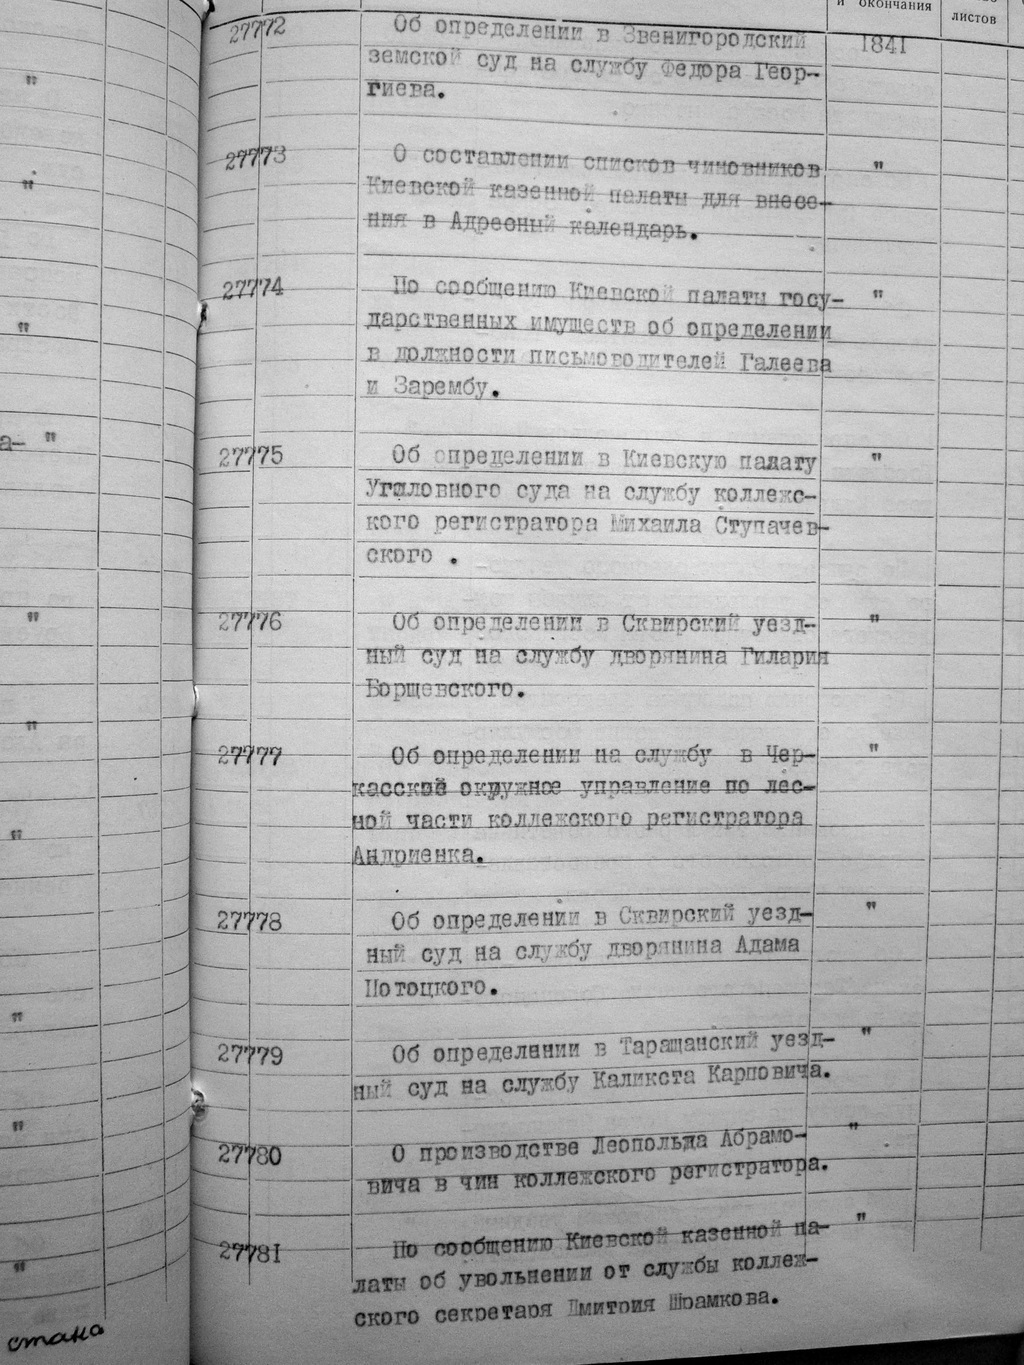 и окончания
листов
27772 Об определении в Звенигородский 1841
земской суд на службу Федора Геор-
гиева.
27773 О составлении списков чиновников "
Киевской казенной палаты для внесе-
ния в Адресный календарь.
27774 По сообщению Киевской палаты госу- "
дарственных имуществ об определении
в должности письмоводителей Галеева
и Зарембу.
27775 Об определении в Киевскую палату "
Уголовного суда на службу коллежс-
кого регистратора Михаила Ступачев-
ского .
27776 Об определении в Сквирский уезд- "
ный суд на службу дворянина Гилария
Борщевского.
27777 Об определении на службу в Чер- "
касское окружное управление по лес-
ной части коллежского регистратора
Андриенка.
27778 Об определении в Сквирский уезд- "
ный суд на службу дворянина Адама
Потоцкого.
27779 Об определании в Таращанский уезд- "
ный суд на службу Каликста Карповича.
27780 О производстве Леопольда Абрамо- "
вича в чин коллежского регистратора.
27781 По сообщению Киевской казенной па- "
латы об увольнении от службы коллеж-
ского секретаря Дмитрия Шрамкова.
а- "
стана